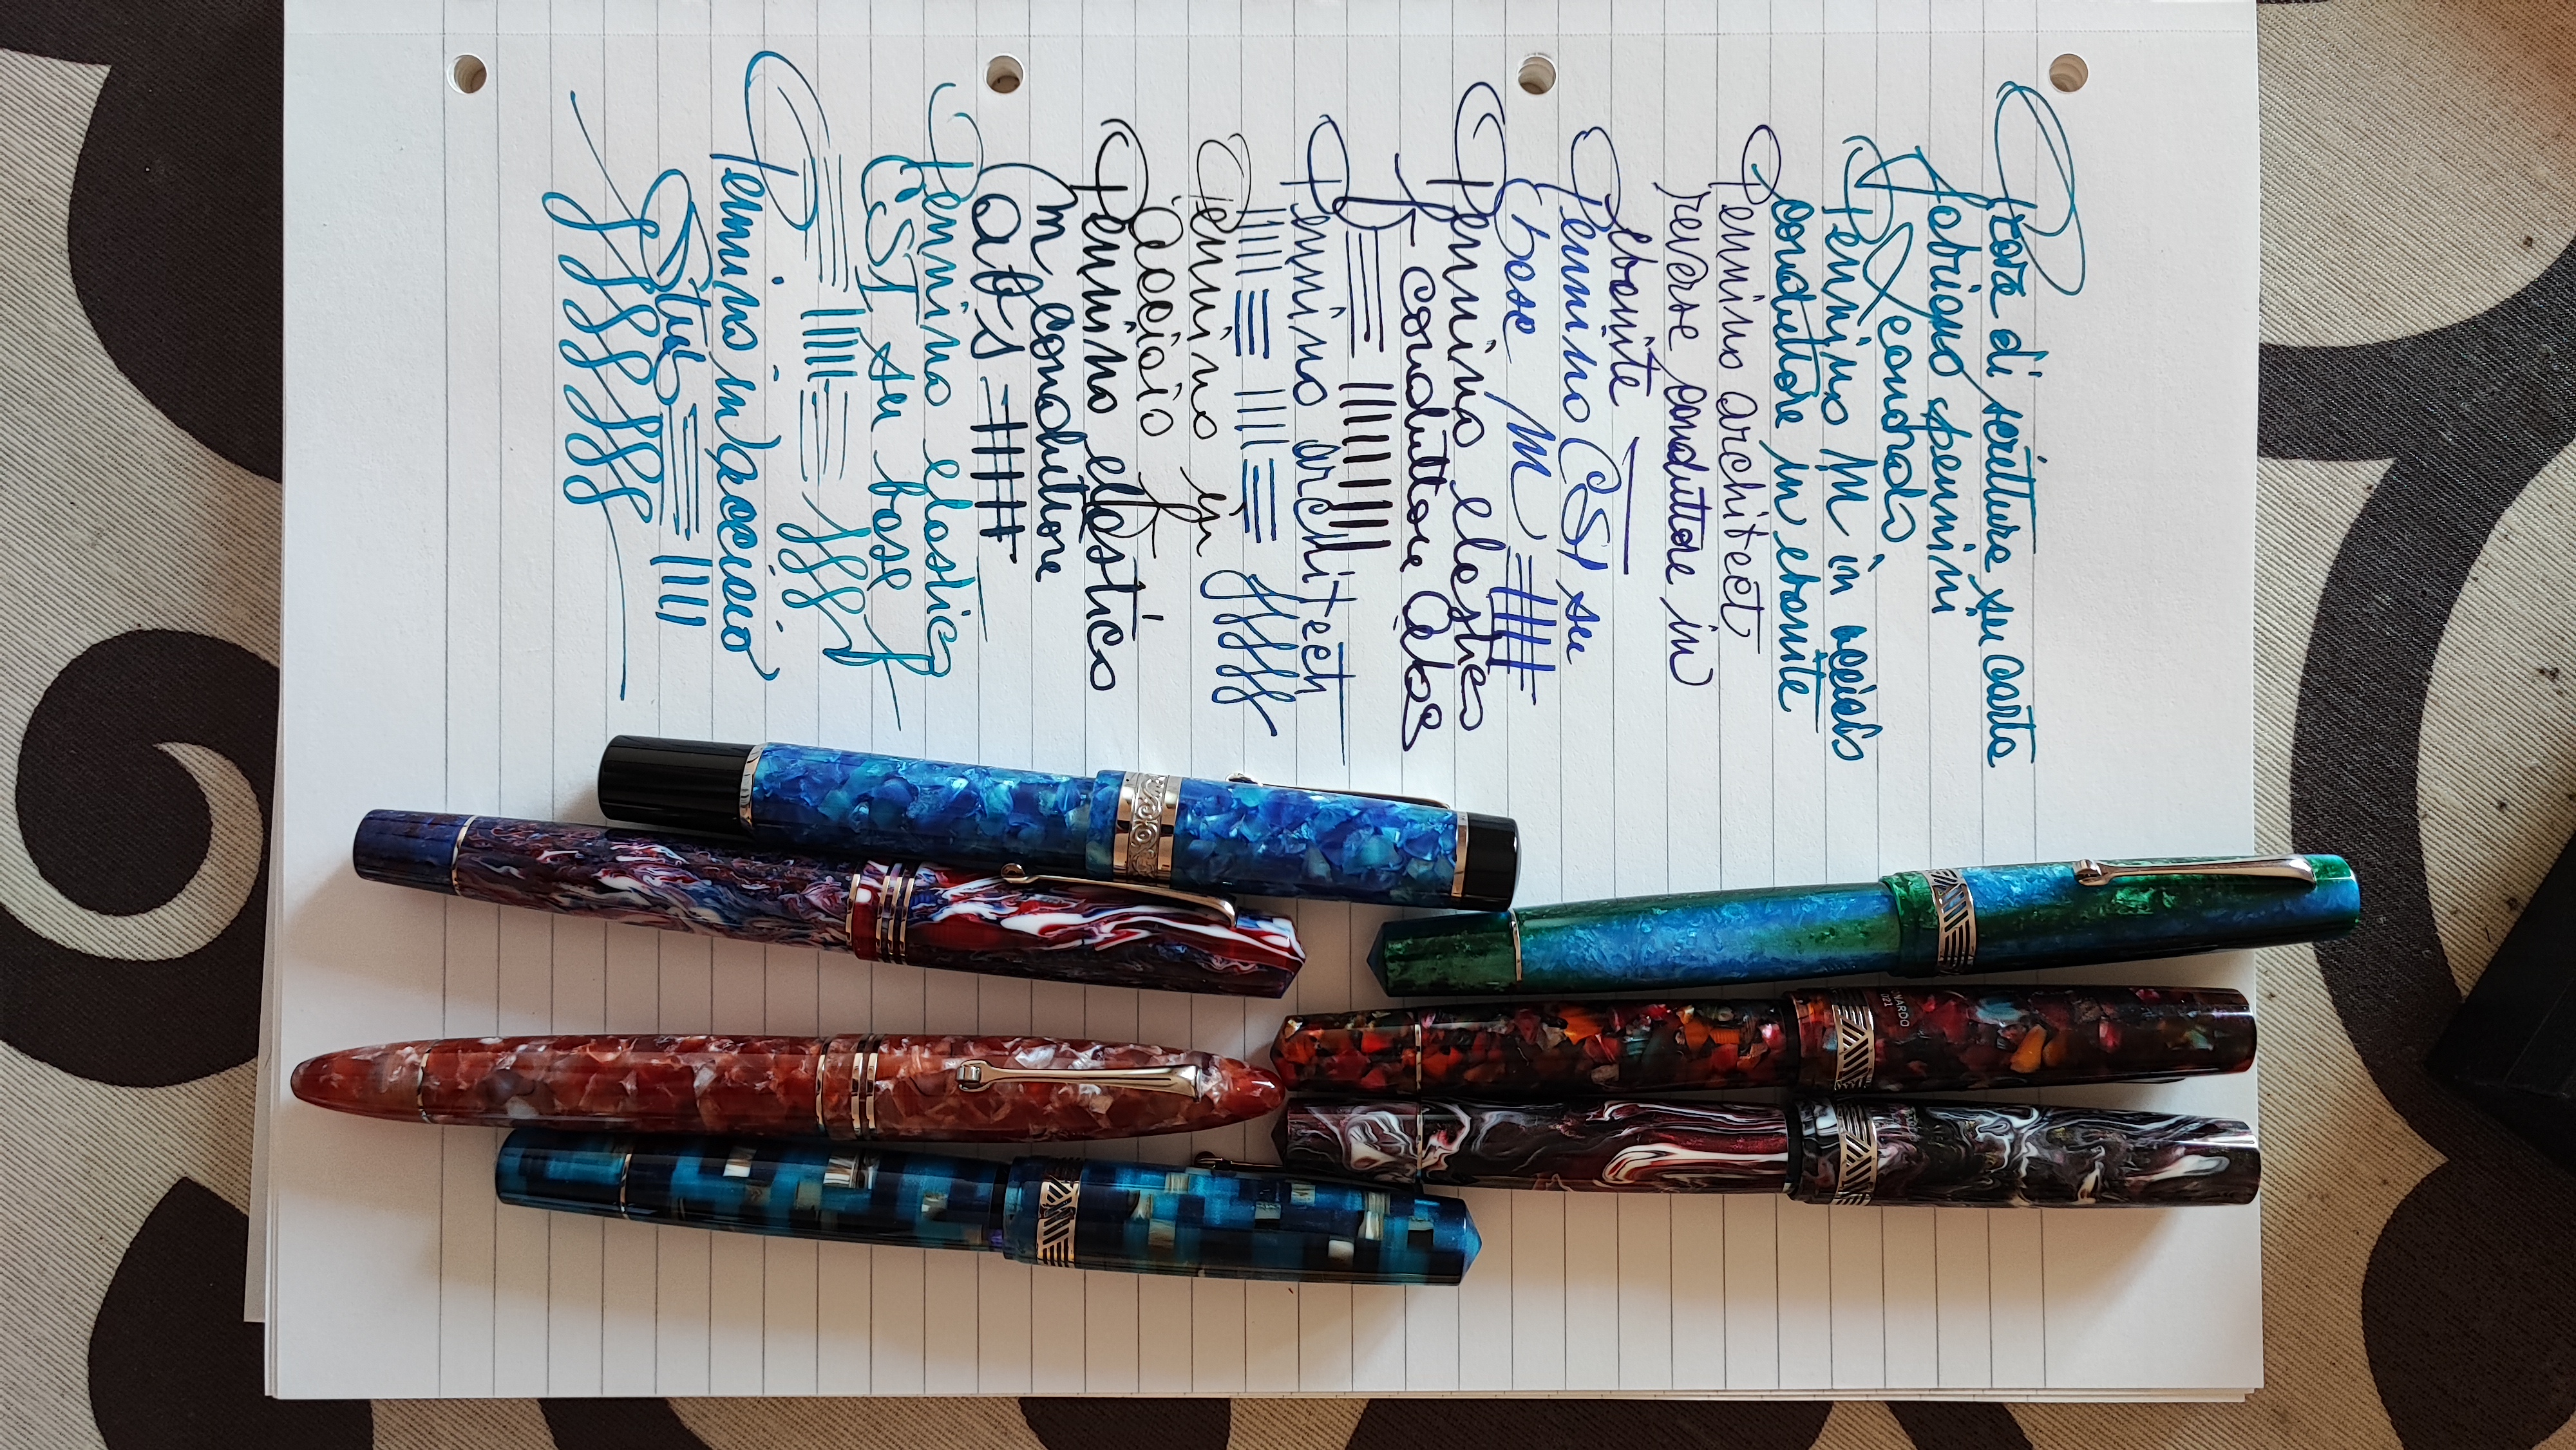 Prova di scrittura su carta
Fabriano spennini
Leonardo
Pennino M in acciaio
conduttore in ebanite
Pennino architect
reverse conduttore in
ebanite
Pennino CSI su
base M
Pennino elastico
F conduttore
Pennino architect
Pennino in
acciaio
Pennino elastico
in conduttore
Pennino elastico
CSI su base F
Pennino in acciaio
Stub
LEONARDO
2021